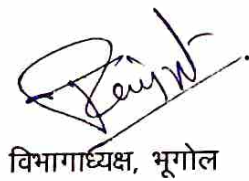 विभागाध्यक्ष, भूगोल